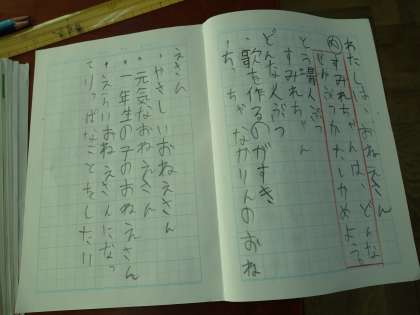 わたしはおねえさん
めすみれちゃんは、どんな
じんぶつかたしかめよう。
とう場人ぶつ
すみれちゃん
どんな人ぶつ
・歌を作るのがすき
・ちっちゃなかりんのおね
えさん
・やさしいおねえさん
・元気なおねえさん
・一年生の子のおねえさん
・えらいおねえさんになっ
てりっぱなことをしたい